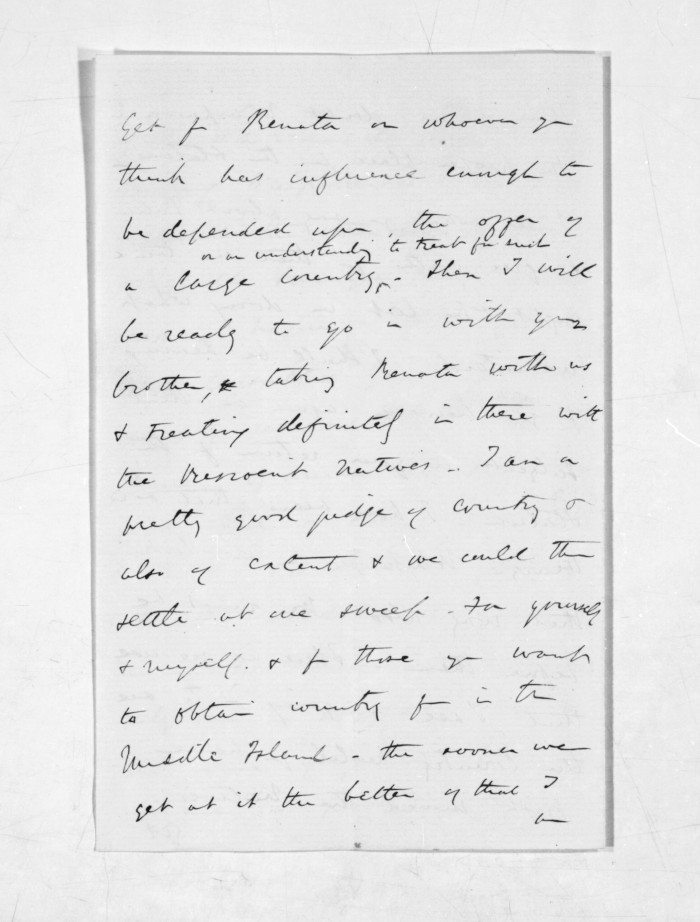 Get fr Renata or whoever you
think has influence enough to
be depended upon, the offer of
or an understanding to treat for such
a large country. - Then I will
be ready to go in with your
brother, taking Renata with us
& treating definitely in there with
the Resident Natives - I am a
pretty good judge of country &
also of extent & we could then
settle at one sweep - For yourself
& myself. & for those you want
to obtain country for in the
Middle Island - the sooner we
get at it the better of that I
am